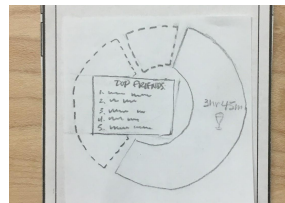 TOP FRIENDS
1.
2.
3.
4.
5.
3hr 45m